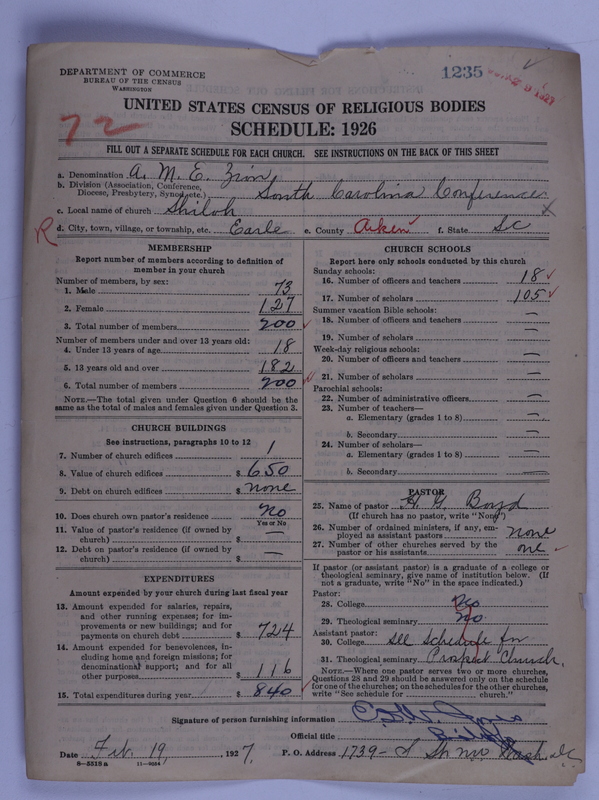 DEPARTMENT OF COMMERCE
BUREAU OF THE CENSUS
WASHINGTON
1235
72
UNITED STATES CENSUS OF RELIGIOUS BODIES
SCHEDULE: 1926
FILL OUT A SEPARATE SCHEDULE FOR EACH CHURCH. SEE INSTRUCTIONS ON THE BACK OF THIS SHEET
a. Denomination A. M. E. Zion
b. Division (Association, Conference, Diocese, Presbytery, Synod, etc.) South Carolina Conference
c. Local name of church Shiloh
R
d. City, town, village, or township, etc. Earle e. County Aiken f. State SC
MEMBERSHIP
Report number of members according to definition of
member in your church
Number of members, by sex:
1. Male 73
2. Female 127
3. Total number of members 200
Number of members under and over 13 years old:
4. Under 13 years of age 18
5. 13 years old and over 182
6. Total number of members 200
NOTE.—The total given under Question 6 should be
same as the total of males and females given under Question 3.
CHURCH BUILDINGS
See instructions, paragraphs 10 to 12
7. Number of church edifices 1
8. Value of church edifices $ 650
9. Debt on church edifices $ none
10. Does church own pastor's residence No
Yes or No
11. Value of pastor's residence (if owned by
church) $ —
12. Debt on pastor's residence (if owned by
church) $ —
EXPENDITURES
Amount expended by your church during last fiscal year
13. Amount expended for salaries, repairs,
and other running expenses; for im-
provements or new buildings; and for
payments on church debt $ 724
14. Amount expended for benevolences, in-
cluding home and foreign missions; for
denominational support; and for all
other purposes $ 116
15. Total expenditures during year $ 840
CHURCH SCHOOLS
Report here only schools conducted by this church
Sunday schools:
16. Number of officers and teachers 18
17. Number of scholars 105
Summer vacation Bible schools:
18. Number of officers and teachers —
19. Number of scholars —
Week-day religious schools:
20. Number of officers and teachers —
21. Number of scholars —
Parochial schools:
22. Number of administrative officers —
23. Number of teachers—
a. Elementary (grades 1 to 8) —
b. Secondary —
24. Number of scholars—
a. Elementary (grades 1 to 8) —
b. Secondary —
PASTOR
25. Name of pastor H. G. Boyd
(If church has no pastor, write "None")
26. Number of ordained ministers, if any, em-
ployed as assistant pastors none
27. Number of other churches served by the
pastor or his assistants one
If pastor (or assistant pastor) is a graduate of a college or
theological seminary, give name of institution below. (If
not a graduate, write "No" in the space indicated.)
Pastor:
28. College No
29. Theological seminary No
Assistant pastor:
30. College See schedule for
31. Theological seminary Prospect Church.
NOTE.—Where one pastor serves two or more churches,
Questions 28 and 29 should be answered only on the schedule
for one of the churches; on the schedules for the other churches,
write "See schedule for church."
Signature of person furnishing information
Official title Bishop
Date Feb. 19, 1927. P. O. Address 1739- S St. NW. Wash. DC
8-5518a 11-9034